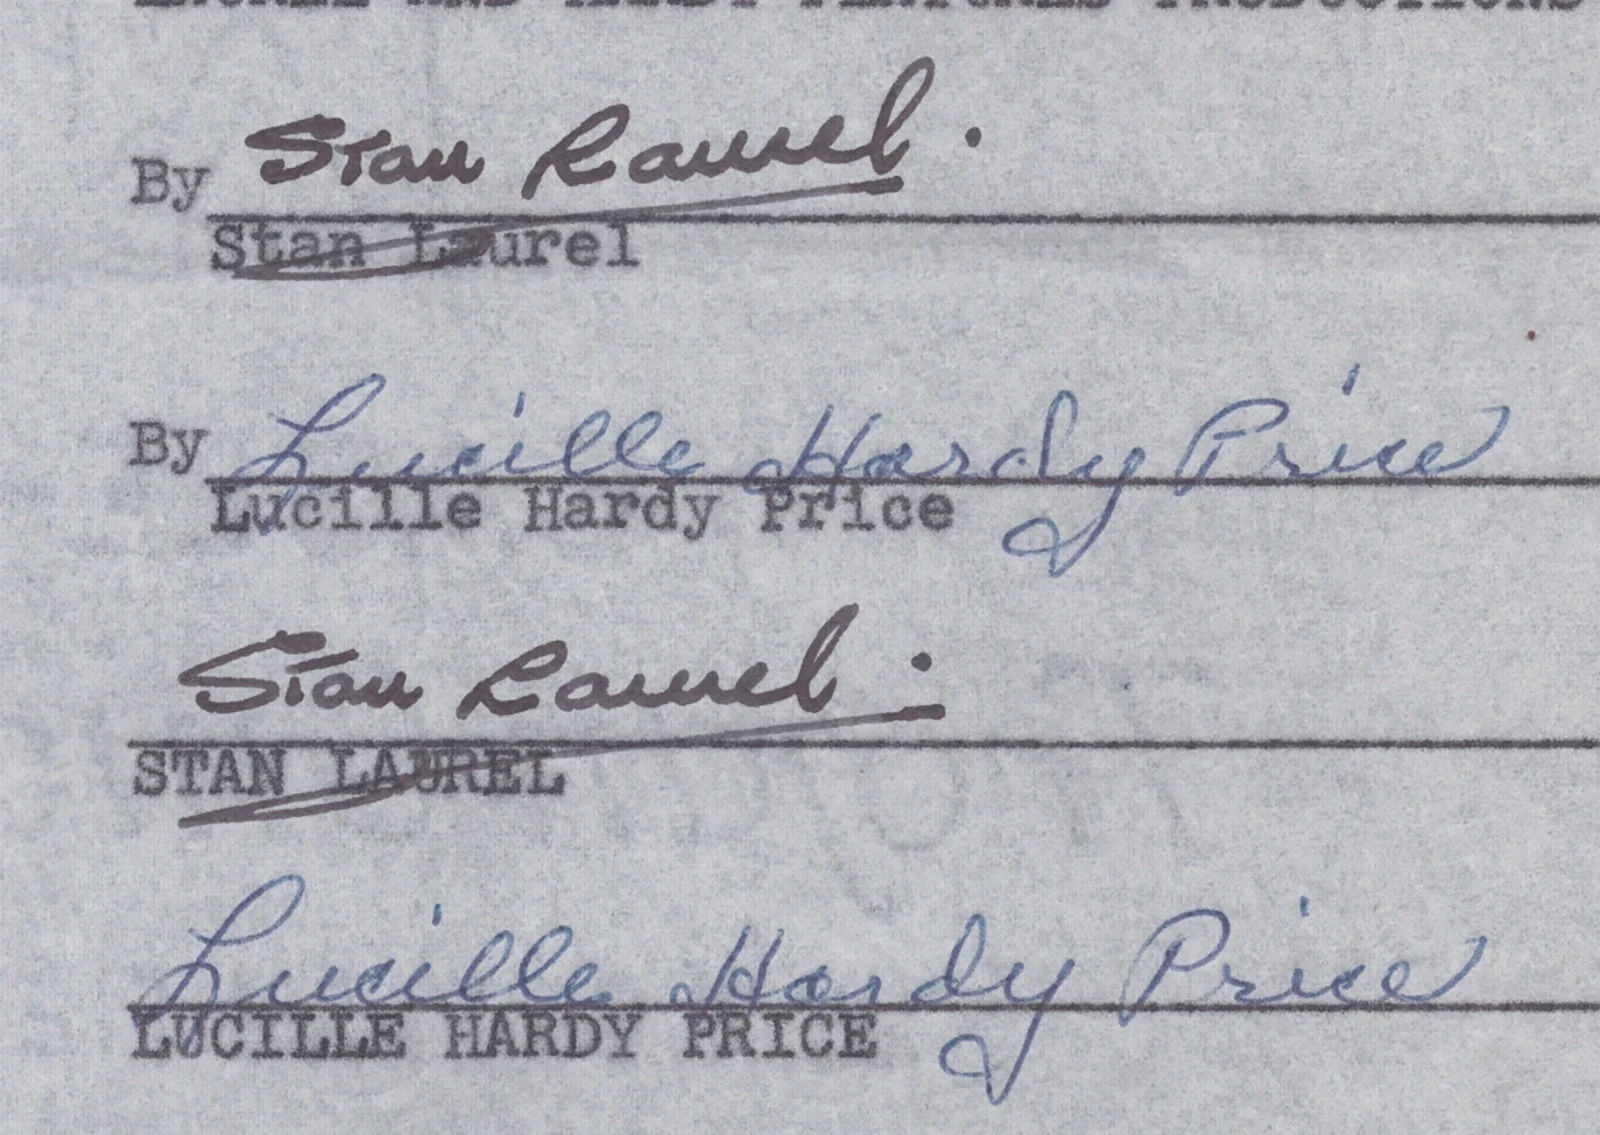 LAUREL AND HARDY FEATURES PRODUCTIONS
By Stan Laurel.
Stan Laurel
By Lucille Hardy Price
Lucille Hardy Price
Stan Laurel.
STAN LAUREL
Lucille Hardy Price
LUCILLE HARDY PRICE